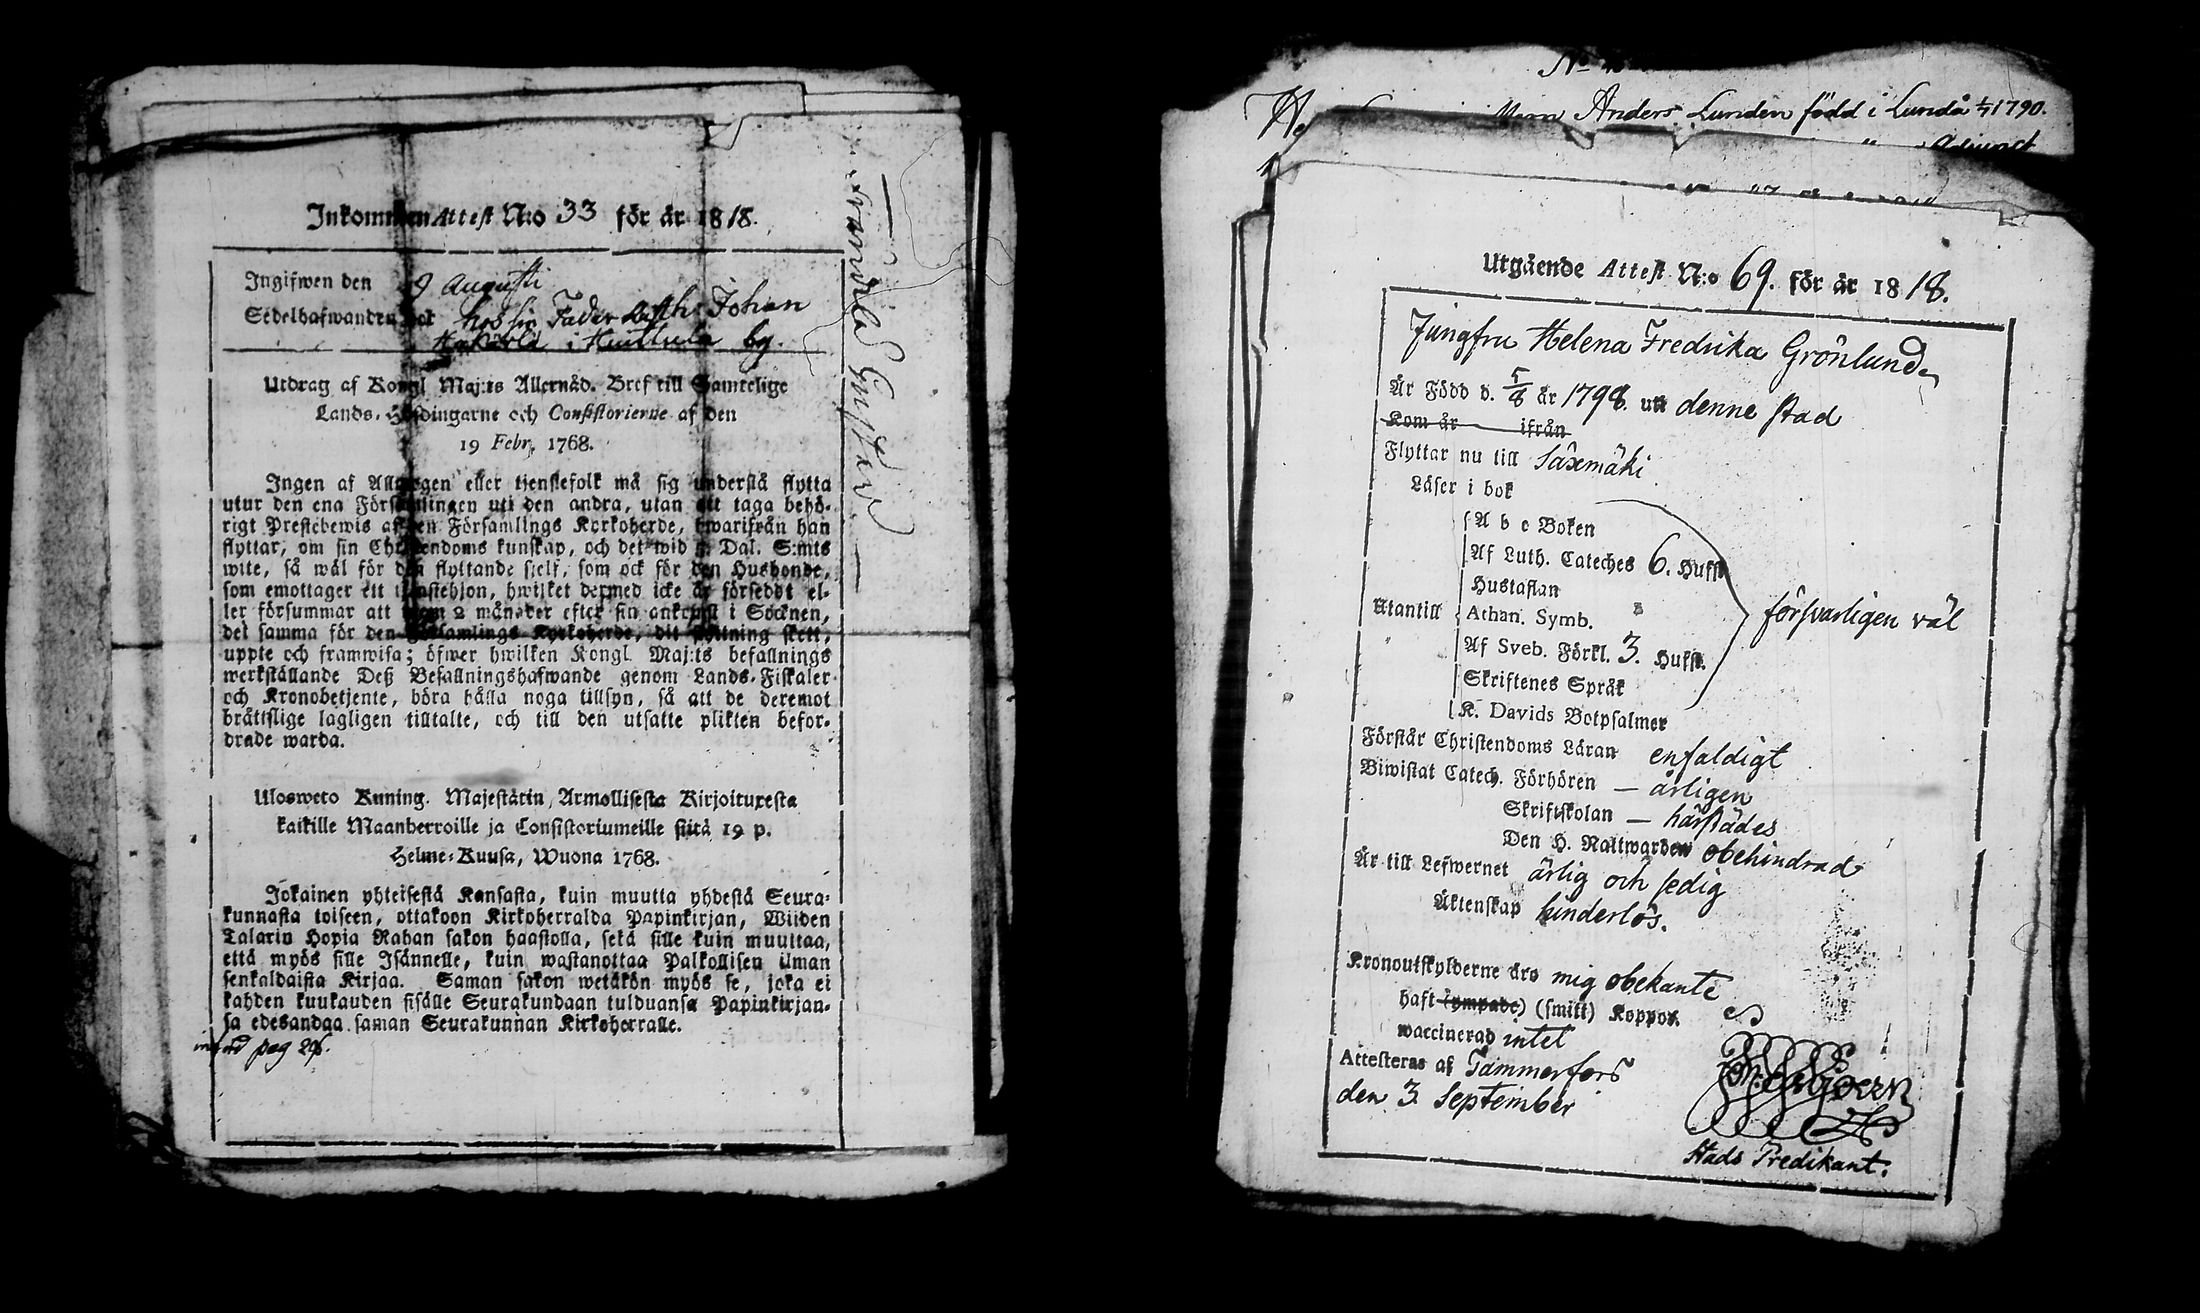 Inkommen Attest N:o 33 för år 1818.
Ingifwen den 9 Augusti
Sedelhafwanden bor hos sin Fader Johan
i by.
Utdrag af Kongl Maj:ts Allernåd. Bref till Samtelige
Lands-Höfdingarne och Consistorierne af den
19 Febr. 1768.
Ingen af Allmogen eller tjenstefolk må sig understå flytta
utur den ena Församlingen uti den andra, utan att taga behö-
rigt Prestebewis af den Församlings Kyrkoherde, hwarifrån han
flyttar, om sin Christendoms kunskap, och det wid 5 Dal. S:mts
wite, så wäl för den flyttande sjelf, som ock för den Husbonde,
som emottager ett tjenstehjon, hwilket dermed icke är försedt el-
ler försummar att inom 2 månader efter sin ankomst i Socknen,
det samma för den Församlings Kyrkoherde, dit flyttning skett,
uppte och framwisa; öfwer hwilken Kongl. Maj:ts befallnings
werkställande Deß Befallningshafwande genom Lands-Fiskaler
och Kronobetjente, böra hålla noga tillsyn, så att de deremot
bråttslige lagligen tilltalte, och till den utsatte plikten befor-
drade warda.
Ulosweto Kuning. Majestätin, Armollisesta Kirjoituxesta
kaikille Maanherroille ja Consistoriumeille siitä 19 p.
Helme-Kuusa, Wuona 1768.
Jokainen yhteisestä Kansasta, kuin muutta yhdestä Seura-
kunnasta toiseen, ottakoon Kirkoherralda Papinkirjan, Wiiden
Talarin Hopia Rahan sakon haastolla, sekä sille kuin muuttaa,
että myös sille Isännelle, kuin wastanottaa Palkollisen ilman
senkaldaista Kirjaa. Saman sakon wetäkön myös se, joka ei
kahden kuukauden sisälle Seurakundaan tulduansa Papinkirjan-
sa edesandaa saman Seurakunnan Kirkoherralle.
pag
Gustav
Anders Lunden född i Lundå 1/7 1790.
Utgående Attest N:o 69. för år 1818.
Jungfru Helena Fredrika Grönlund
Är Född d. 5/8 år 1798. uti denne stad
Kom år ifrån
Flyttar nu till Säxmäki
Läser i bok
A b c Boken
Af Luth. Cateches 6. Hufst
Hustaflan
Utantill Athan. Symb. försvarligen väl
Af Sveb. Förkl. 3. Hufst.
Skriftenes Språk
K. Davids Botpsalmer
Förstår Christendoms Läran enfaldigt
Biwistat Catech. Förhören — årligen
Skriftskolan — härstädes
Den H. Nattwarden obehindrad
Är till Lefwernet ärlig och sedig
Äktenskap hinderlös.
Kronoutskylderne äro mig obekante
haft (ympade) (smitt) Koppor.
waccinerad intet
Attesteras af Tammerfors
den 3 September
Stads Predikant.